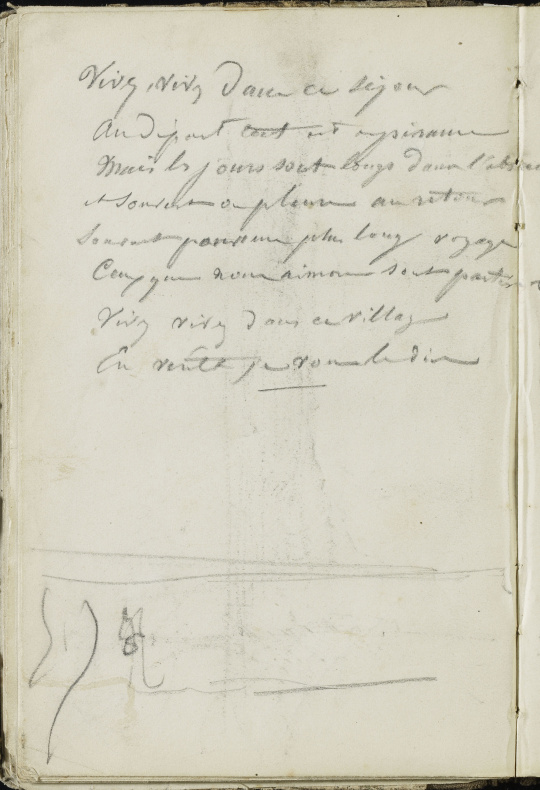 Vivez, vivez dans ce séjour
Au départ tout est espérance
Mais les jours sont longs dans l'absence
et souvent on pleure au retour
Souvent pour un plus long voyage
Ceux que nous aimons sont partis
Vivez vivez dans ce village
En vérité je vous le dis